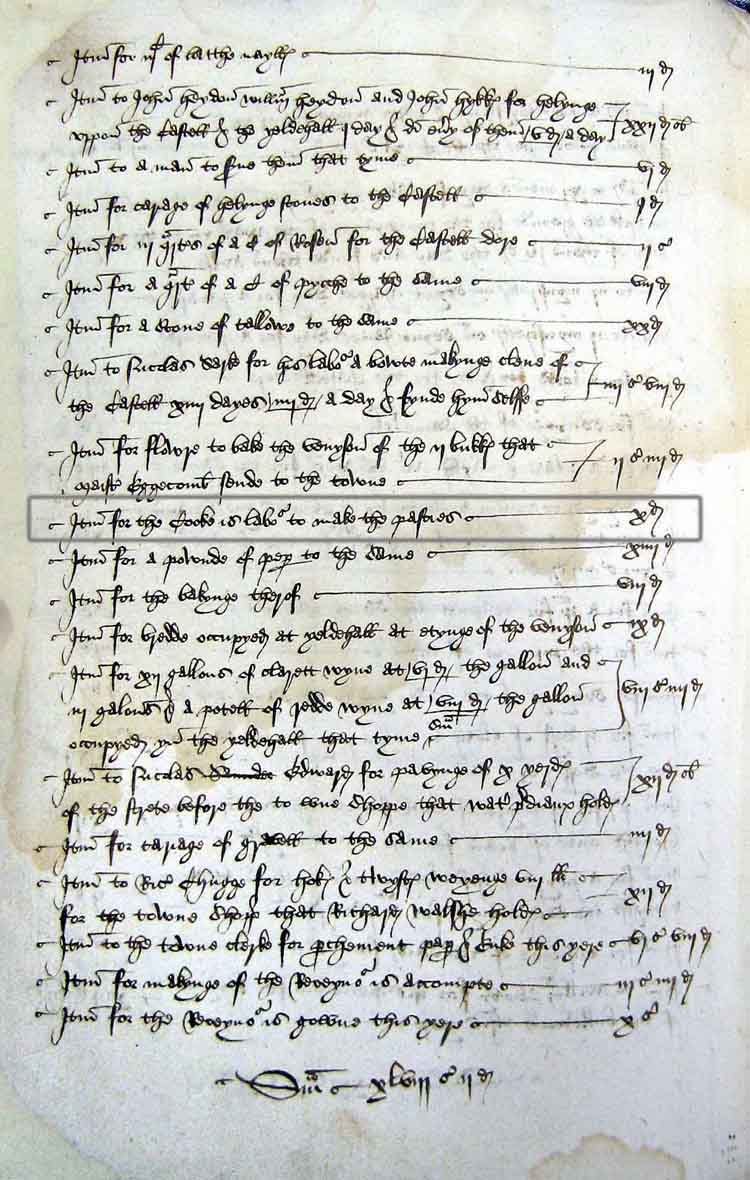 Itm for m of latthe nayll iij d
Itm to John heydon willm heydon and John hykk for helynge
vppon the Castell & the yeldehall j day & di eny of them v d a day xxij d ob
Itm to a man to sue them that tyme vj d
Itm for cariage of helynge stones to the Castell j d
Itm for iij qrts of a C of Rosen for the Castell dore ij s
Itm for a qrt of a C of pycche to the same viij d
Itm for a stone of tallowe to the same xx d
Itm to Nicolas for his labor a bowte makynge clene of
the Castell xiiij dayes iiij d a day & fynde hym selffe iiij s viij d
Itm for flowre to bake the venyson of the ij bukk that
maist Eggecomb sende to the towne ij s iiij d
Itm for the Cooke is labor to make the pasties x d
Itm for a pownde of pep to the same xiiij d
Itm for the bakynge therof viij d
Itm for bredde occupyed at yeldehall at etynge of the venyson ix d
Itm for xij gallons of clarett wyne at vj d the gallon and
iij galons & a potell of redde wyne at viij d the gallon viij s iiij d
occupyed yn the yeldehall that tyme
Itm to Nicolas Edward for pavynge of x yerd
of the strete before the towne shoppe that hold xij d ob
Itm for cariage of gravell to the same iiij d
Itm to Ric Chugge for hok & twyst weyenge viij ll
for the towne shopp that Richard Walshe hold xij d
Itm to the towne clerke for pchement pap & Enke this yere vj s viij d
Itm for makynge of the Receyuor is accompte iij s iiij d
Itm for the Receyuor is gowne this yere x s
Sum xlviij s ij d